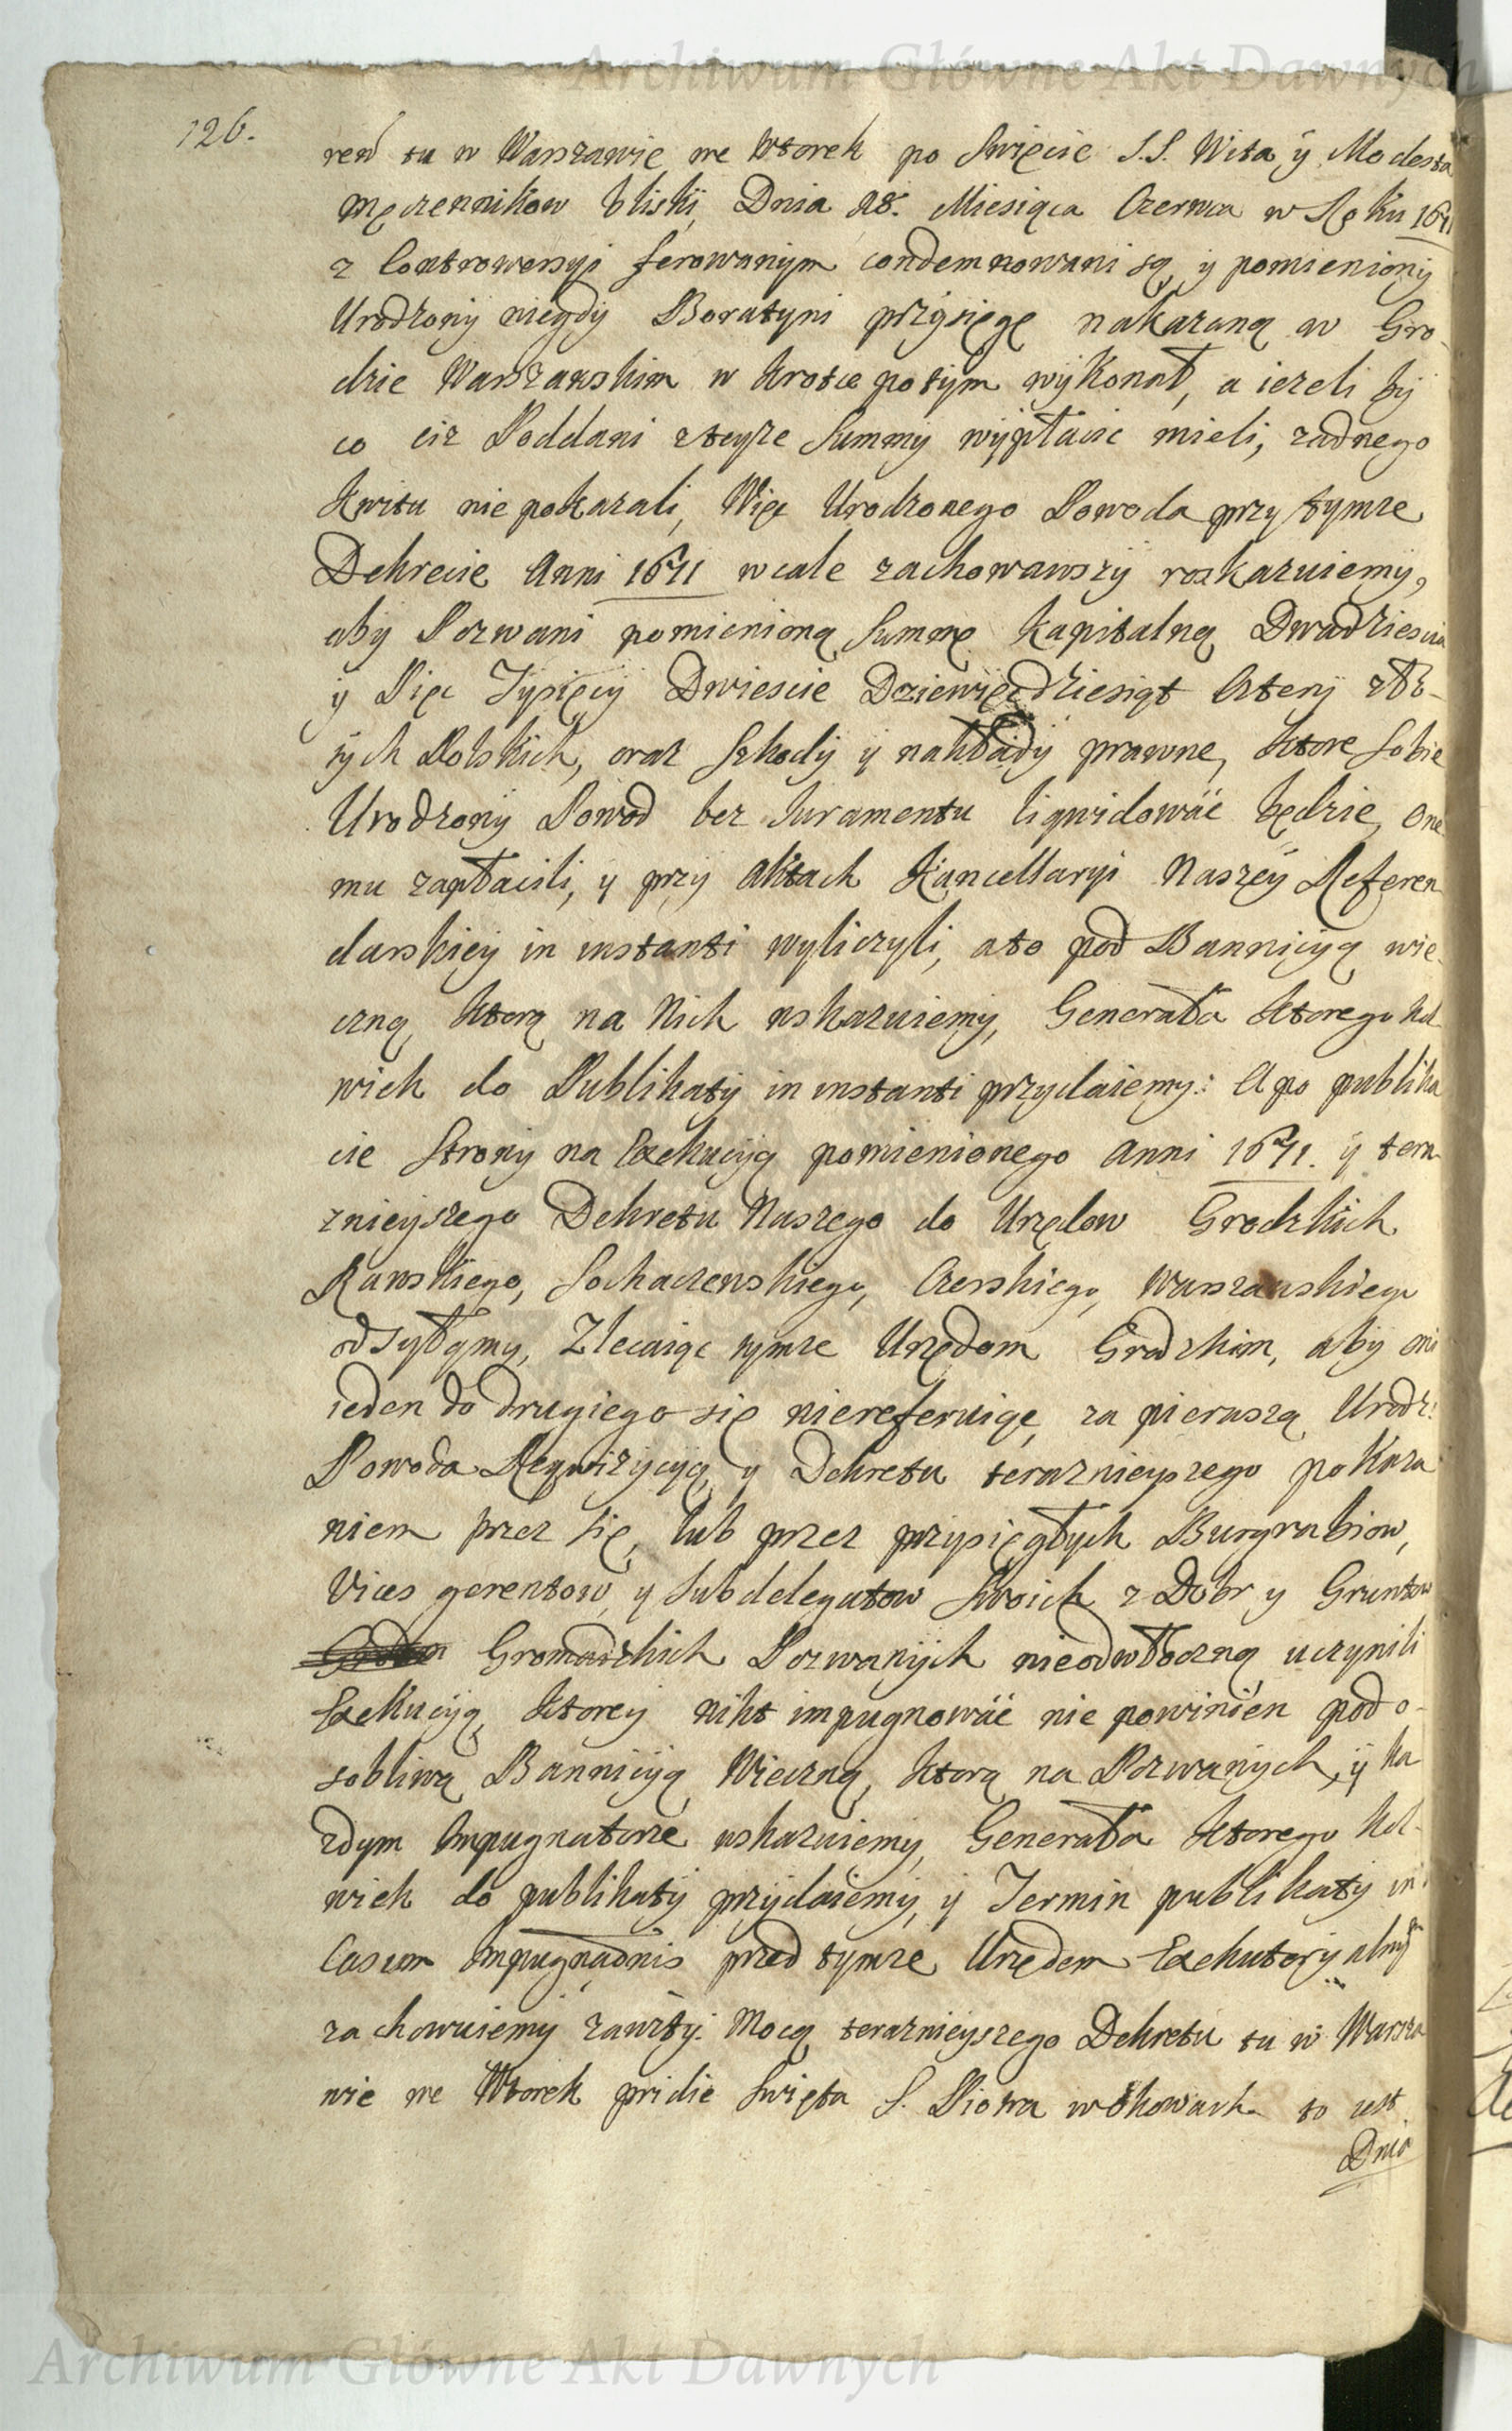 Archiwum Główne Akt Dawnych
126.
ren tu w Warszawie we Wtorek po Swięcie S.S. Wita ÿ Modesta
Męczennikow bliskÿ Dnia 18. Miesiąca Czerwca w Roku 1671
z Controwersyi ferowanym condemnowani są, y pomieniony
Urodzonÿ niegdÿ Boratyni przÿsięgę nakazaną w Gro-
dzie Warszawskim w krotce potÿm wÿkonał, a iezeli bÿ
co ciz Poddani zteyze Summÿ wÿpłacic mieli, zadnego
Kwitu nie pokazali, Więc Urodzonego Powoda przy tymze
Dekrecie Anni 1671 wcale zachowawszÿ roskazuiemy,
abÿ Pozwani pomienioną Summę Kapitalną Dwadziescia
ÿ Pięc Tysięcÿ Dwiescie Dziewięcdziesiąt Czterÿ zło-
tÿch Polskich, oraz Szkodÿ ÿ nakładÿ prawne, ktore sobie
Urodzonÿ Powod bez Juramentu liqwidowac będzie, one
mu zapłacili, y przÿ Aktach Kancellaryi Naszeÿ Referen
darskieÿ in instanti wyliczyli, ato pod Bannicÿą wie-
czną, ktorą na Nich wskazuiemÿ, Generała ktorego kol
wiek do Publikatÿ in instanti przydaiemy: A po publika
cie Stronÿ na Exekucÿą pomienionego Anni 1671. ÿ tera
znieÿszego Dekretu Naszego do Urzędow Grodzkich
Rawskiego, Sochaczewskiego, Czerskiego, Warszawskiego
odsyłamy, Zlecaiąc tymze Urzędom Grodzkim, abÿ oni
ieden do drugiego się niereferuiąc, za pierwszą Urodz:
Powoda Reqwizycyą, y Dekretu teraznieyszego pokaza
niem przez się, lub przez przysięgłych Burgrabiow,
Vices gerentow, y Subdelegatow Swoich z Dobr y Gruntow
Gromadzkich Pozwanÿch nieodwłoczną uczynili
Exekucÿą, ktorey nikt impugnowac nie powinien pod o-
sobliwą Bannicÿą Wieczną, ktorą na Pozwanÿch, ÿ ka
zdym Impugnatorze wskazuiemy, Generała ktorego kol-
wiek do publikatÿ przÿdaiemÿ, ÿ Termin publikatÿ in
Casum Impugnationis przed tymze Urzędem Exekutoryalnym
zachowuiemÿ zawitÿ: Mocą teraznieyszego Dekretu tu w Warsza
wie we Wtorek pridie Swięta S. Piotra w okowach to iest
Dnia
Archiwum Główne Akt Dawnych